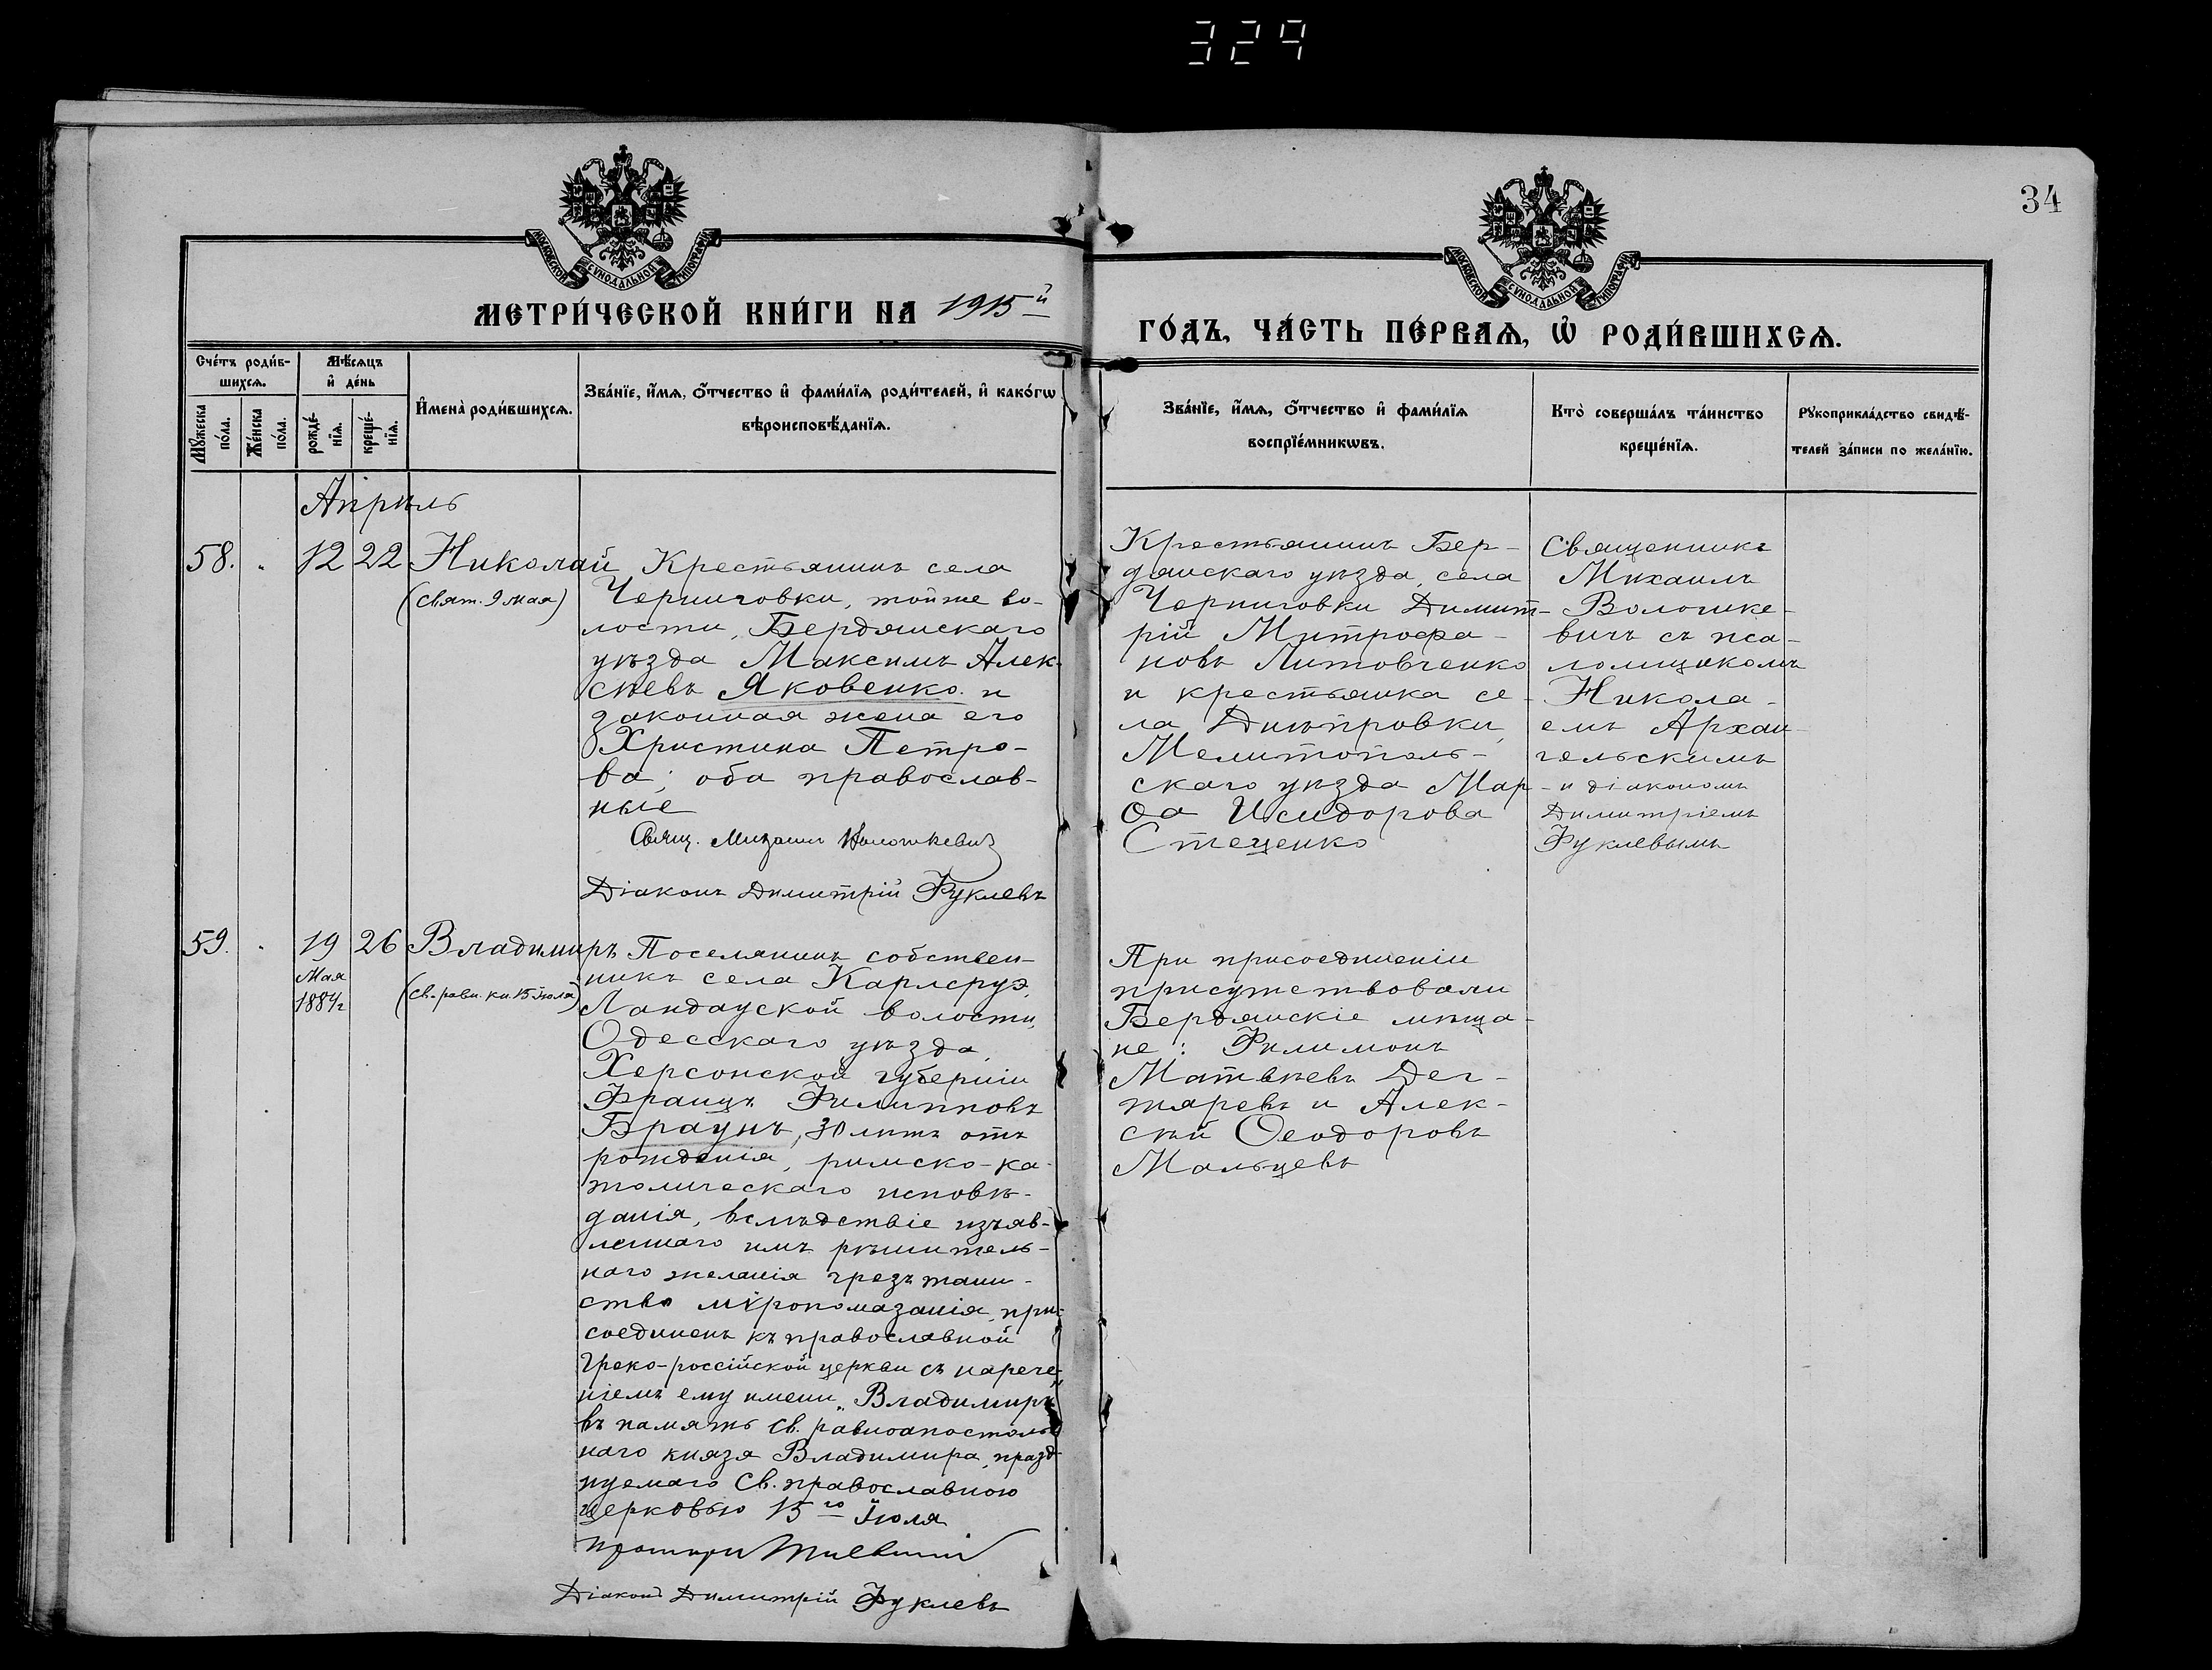 329
34
МОСКОВСКОЙ СѴНОДАЛЬНОЙ ТИПОГРАФІИ
МОСКОВСКОЙ СѴНОДАЛЬНОЙ ТИПОГРАФІИ
МЕТРИ́ЧЕСКОЙ КНИ́ГИ НА 1915й
ГО́ДЪ, ЧА́СТЬ ПЕ́РВАѦ, Ѽ РОДИ́ВШИХСѦ.
Сче́тъ роди́в-
шихсѧ.
Мѣ́сѧцъ
и҆ де́нь
Мꙋ́жеска
по́ла.
Же́нска
по́ла.
рожде́-
нїѧ.
креще́-
нїѧ.
И҆мена̀ роди́вшихсѧ.
Зва́нїе, и҆́мѧ, ѻ҆́тчество и҆ фами́лїѧ роди́телей, и҆ како́гѡ
вѣроисповѣ́данїѧ.
Зва́нїе, и҆́мѧ, ѻ҆́тчество и҆ фами́лїѧ
воспрїе́мникѡвъ.
Кто̀ соверша́лъ та́инство
креще́нїѧ.
Рꙋкоприкла́дство свидѣ́-
телей за́писи по жела́нїю.
Апрѣль
58. " 12 22 Николай
(Свят. 9 мая)
Крестьянинъ села
Черниговки, той же во-
лости, Бердянскаго
уѣзда Максимъ Алек-
сѣевъ Яковенко и
законная жена его
Христина Петро-
ва; оба православ-
ные
Свящ. Михаилъ Вологкевич
Діаконъ Димитрій Фуклевъ
Крестьянинъ Бер-
дянскаго уѣзда, села
Черниговки Димит-
рій Митрофа-
новъ Литовченко
и крестьянка се-
ла Днѣпровки,
Мелитополь-
скаго уѣзда Мар-
ѳа Исидорова
Стеценко
Священникъ
Михаилъ
Вологке-
вичъ съ пса-
ломщикомъ
Никола-
емъ Архан-
гельскимъ
и діакономъ
Димитріемъ
Фуклевымъ
59. " 19 26 Владимиръ
Мая
1884 г
(св. равн. кн. 15 Іюля)
Поселянинъ собствен-
никъ села Карлсруэ,
Ландауской волости,
Одесскаго уѣзда,
Херсонской губерніи
Францъ Филипповъ
Браунъ, 30 лѣтъ отъ
рожденія, римско-ка-
толическаго исповѣ-
данія, вслѣдствіе изъяв-
леннаго имъ рѣшитель-
наго желанія чрезъ таин-
ство мѵропомазанія, при-
соединенъ къ православной
Греко-россійской церкви съ нарече-
ніемъ ему имени „Владимиръ"
въ память св. равноапостоль-
наго князя Владимира, празд-
нуемаго Св. православною
церковью 15го Іюля
Діаконъ Димитрій Фуклевъ
При присоединеніи
присутствовали
Бердянскіе мѣща-
не: Филимонъ
Матвѣевъ Дег-
тяревъ и Алек-
сѣй Ѳеодоровъ
Мальцевъ